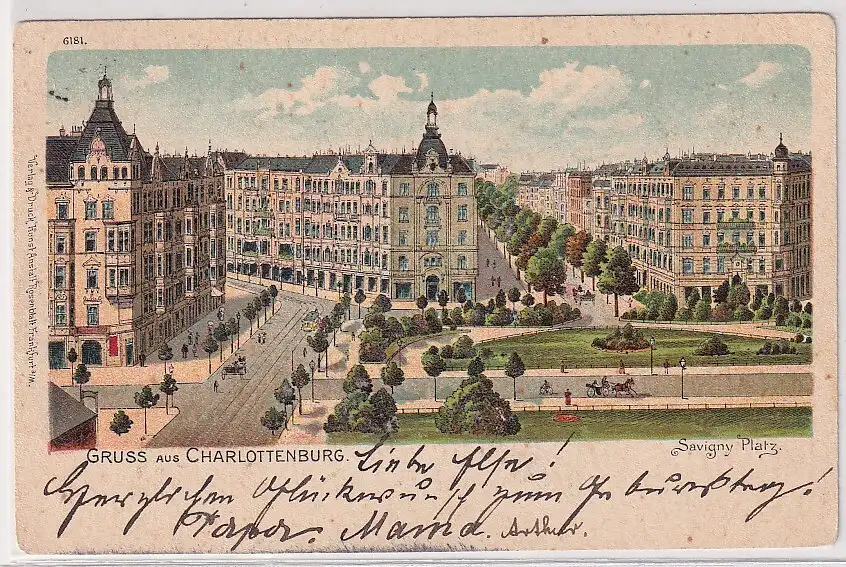 6181.
Verlag & Druck, Kunst Anstalt Rosenblatt Frankfurt a/M.
GRUSS AUS CHARLOTTENBURG.
Savigny Platz.
Liebe Else!
Herzlichen Glückwunsch zum Geburtstag!
Papa. Mama. Arthur.